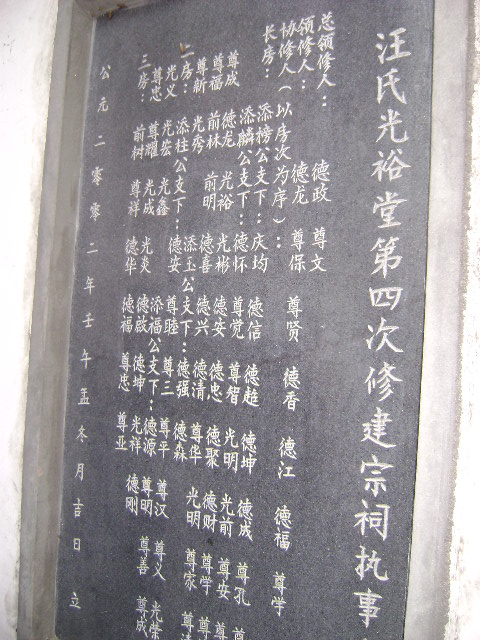 汪氏光裕堂第四次修建宗祠执事
总领修人：德政 尊文
领修人：德龙 尊保 尊贤 德香 德江 德福 尊学
协修人（以房次为序）：
长房：添榜公支下：庆均 德信 德趋 德坤 德成 尊孔
添麟公支下：德怀 尊觉 尊智 光明 光前 尊安
尊成 德龙 光裕 光彬 德安 德忠 德聚 德财 尊学
尊福 前林 前明 德喜 德兴 德清 尊华 光明 尊家
尊新 光秀 添玉公支下：德强 德森
二房：添柱公支下：德安 尊睦 尊三 尊平 尊汉 尊义 光荣
光义 光宏 光鑫 添福公支下：德源 尊明 尊善 尊成
尊忠 尊耀 光成 光炎 德啟 德坤 光祥 德刚
三房：前树 尊祥 德华 德福 尊忠 尊亚
公元二零零二年壬午孟冬月吉日立